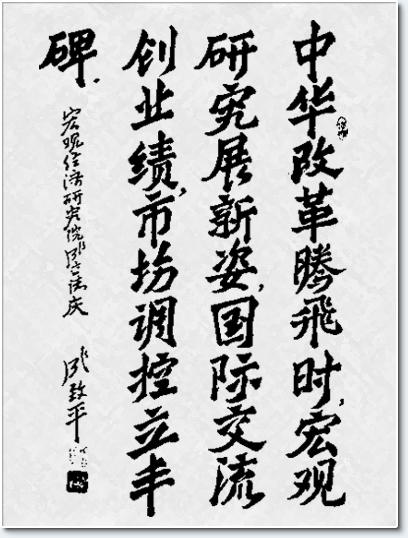 中华改革腾飛时,宏观
研究展新姿,国际交流
创业绩,市场调控立丰
碑.
宏观经济研究院
致平